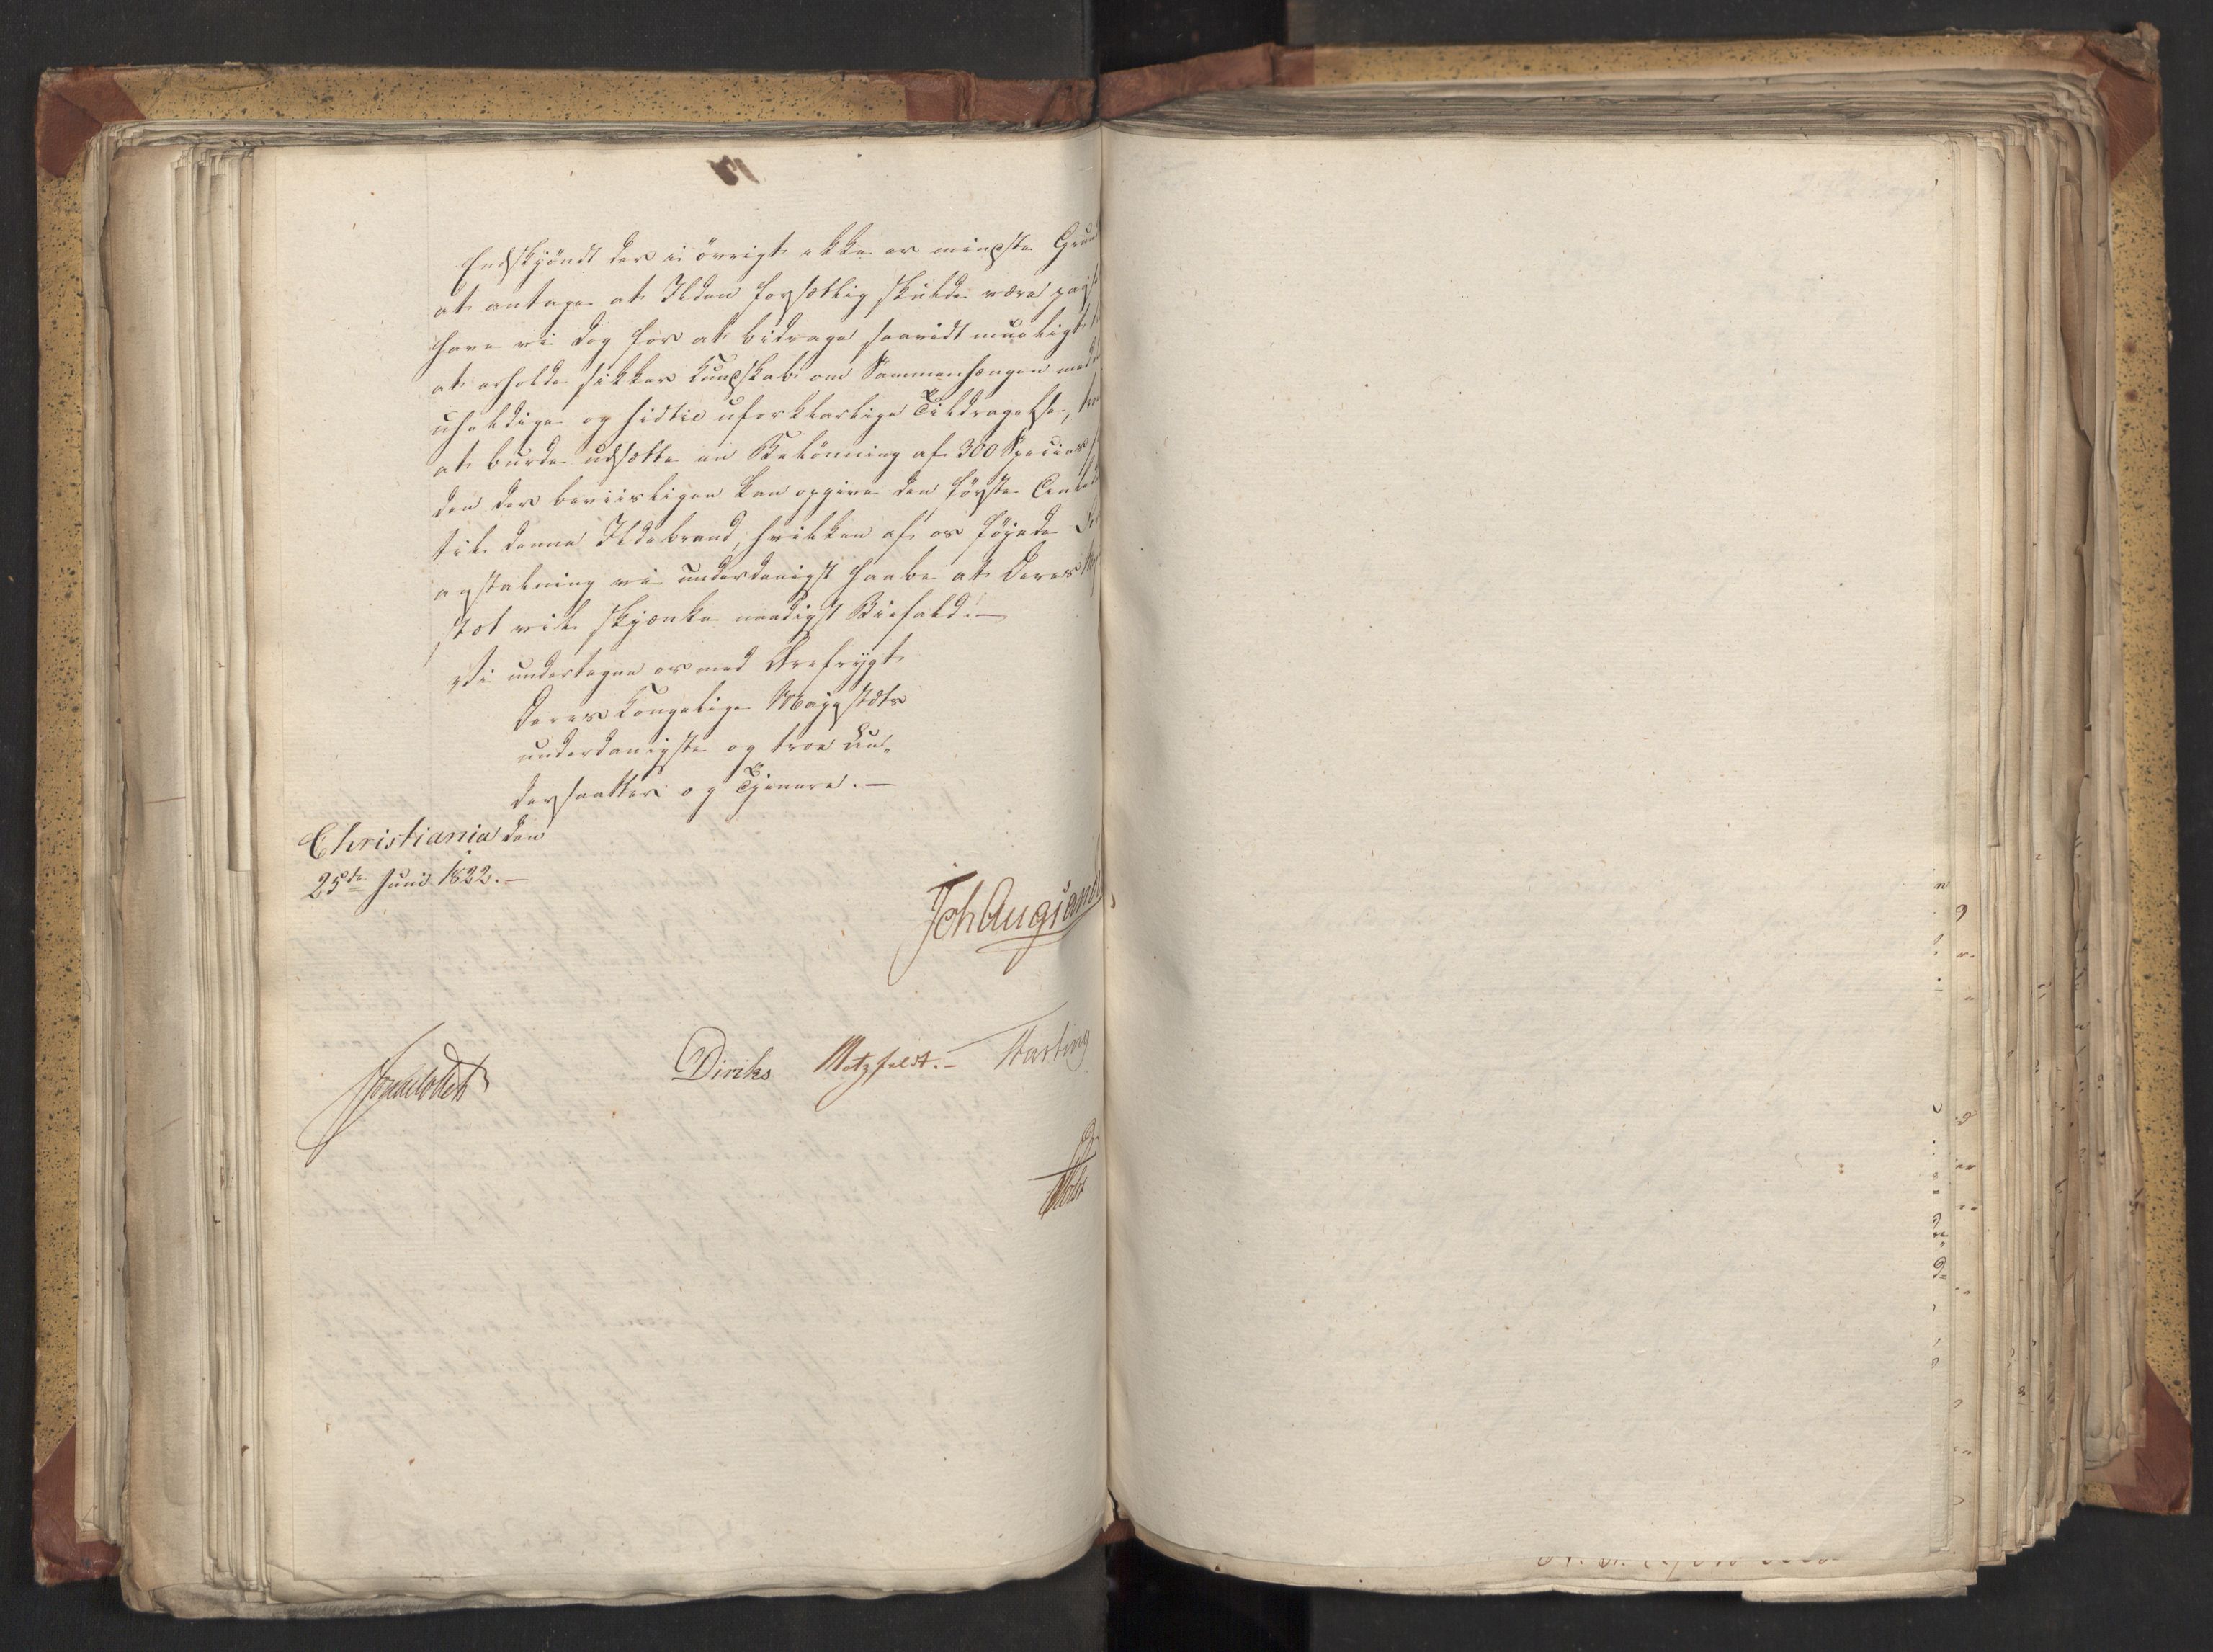 Endskjöndt der i övrigt ikke er mindste Grund
at antage at Ilden forsætlig skulde være
have vi dog for at bidrage saavidt mueligt
at erholde sikker Kundskab om Sammenhængen med
uheldige og hidtil uforklarlige Tildragelse,
at burde udsætte en Belönning af 300 Species
den der beviisligen kan opgive den förste
til denne Ildebrand, hvilken af os föiede
anstaltning vi underdanigst haabe at Deres
stæt vil skjænke naadigst Biefald.—
Vi undertegne os med Ærefrygt
Deres Kongelige Majestæts
underdanigste og troe Un-
dersaatter og Tjenere.—
Christiania den
25de Juni 1822.—
Joh Aug Sand
Diriks Motzfeldt.—
Holst